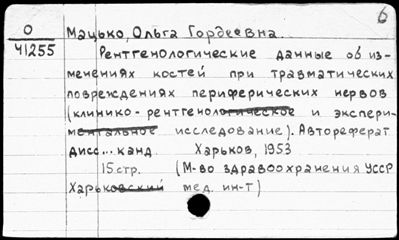 б
О
41255
Мацько, Ольга Гордеевна.
Рентгенологические данные об из-
менениях костей при травматических
повреждениях периферических нервов
(клинико-рентгенологическое и экспери-
ментальное исследование). Автореферат
дисс... канд. Харьков, 1953
15 стр. (М-во здравоохранения УССР
Харьковский мед. ин-т)